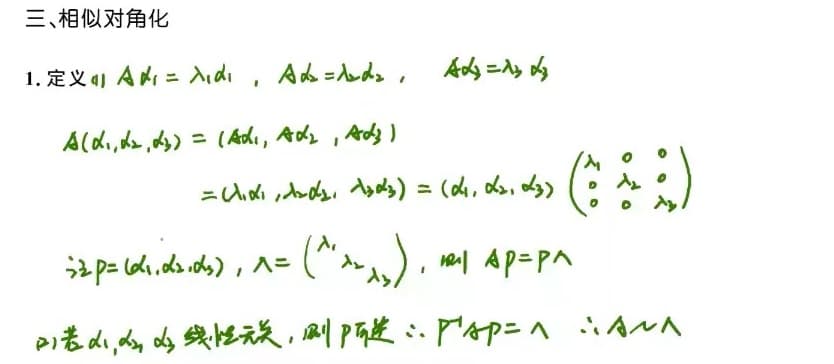 三、相似对角化
1. 定义 (1) Aα₁ = λ₁α₁ , Aα₂ = λ₂α₂ , Aα₃ = λ₃α₃
A(α₁, α₂, α₃) = (Aα₁, Aα₂, Aα₃)
= (λ₁α₁, λ₂α₂, λ₃α₃) = (α₁, α₂, α₃) (λ₁ 0 0
0 λ₂ 0
0 0 λ₃)
记 P = (α₁, α₂, α₃) , Λ = (λ₁ λ₂ λ₃) , 则 AP = PΛ
(2) 若 α₁, α₂, α₃ 线性无关, 则 P可逆 ∴ P⁻¹AP = Λ ∴ A ~ Λ